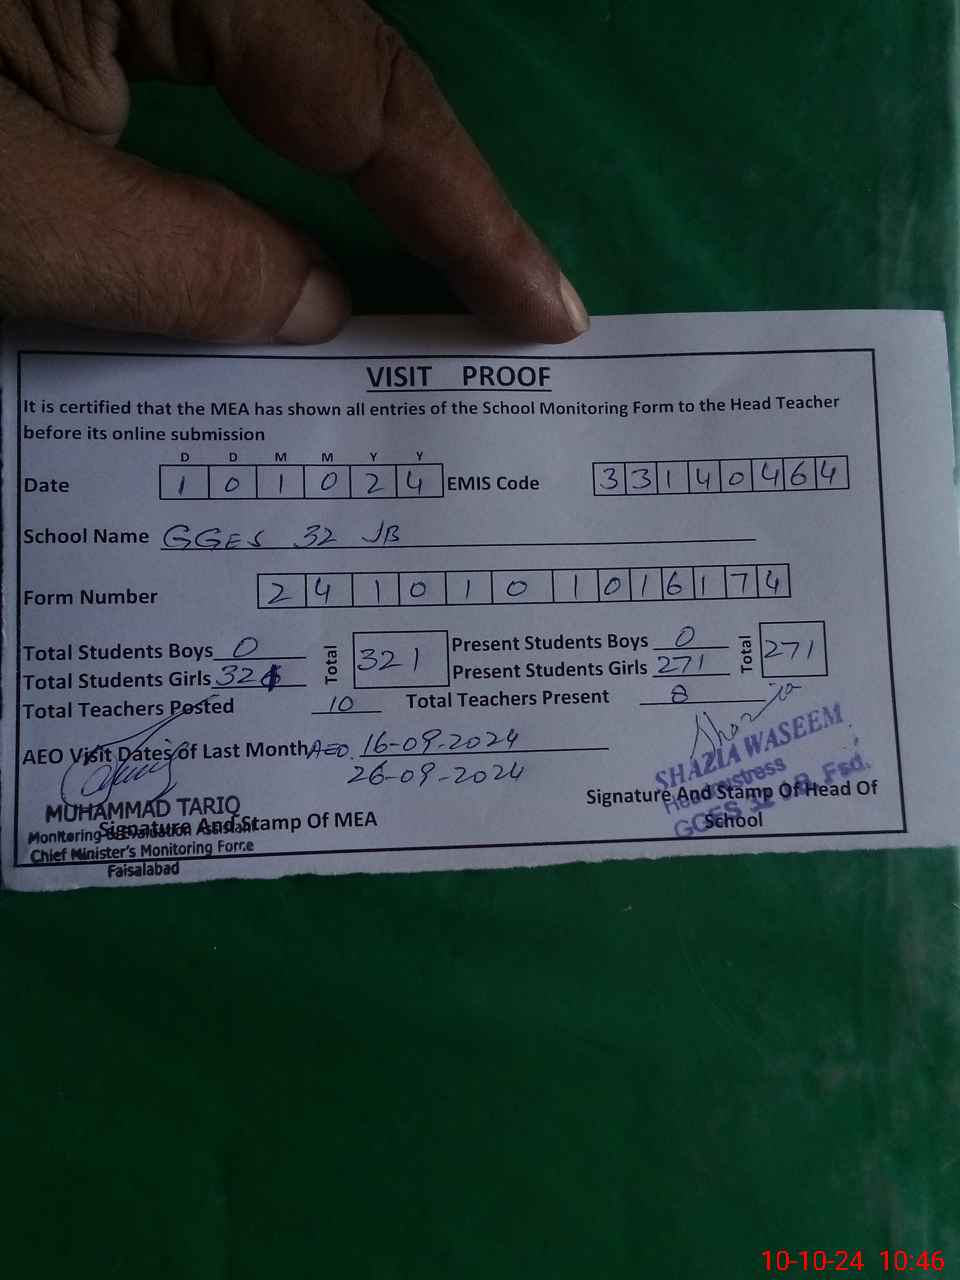 VISIT PROOF
It is certified that the MEA has shown all entries of the School Monitoring Form to the Head Teacher
before its online submission
D D M M Y Y
Date 1 0 1 0 2 4 EMIS Code 3 3 1 4 0 4 6 4
School Name GGES 32 JB
Form Number 2 4 1 0 1 0 1 0 1 6 1 7 4
Total Students Boys 0 Total 321 Present Students Boys 0 Total 271
Total Students Girls 321 Present Students Girls 271
Total Teachers Posted 10 Total Teachers Present 8
AEO Visit Dates of Last Month AEO. 16-09-2024
26-09-2024
Shazia
SHAZIA WASEEM
Headmistress
GGES 32 J.B. Fsd.
Signature And Stamp Of Head Of
School
MUHAMMAD TARIQ
Signature And Stamp Of MEA
Monitoring & Evaluation Assistant
Chief Minister's Monitoring Force
Faisalabad
10-10-24 10:46